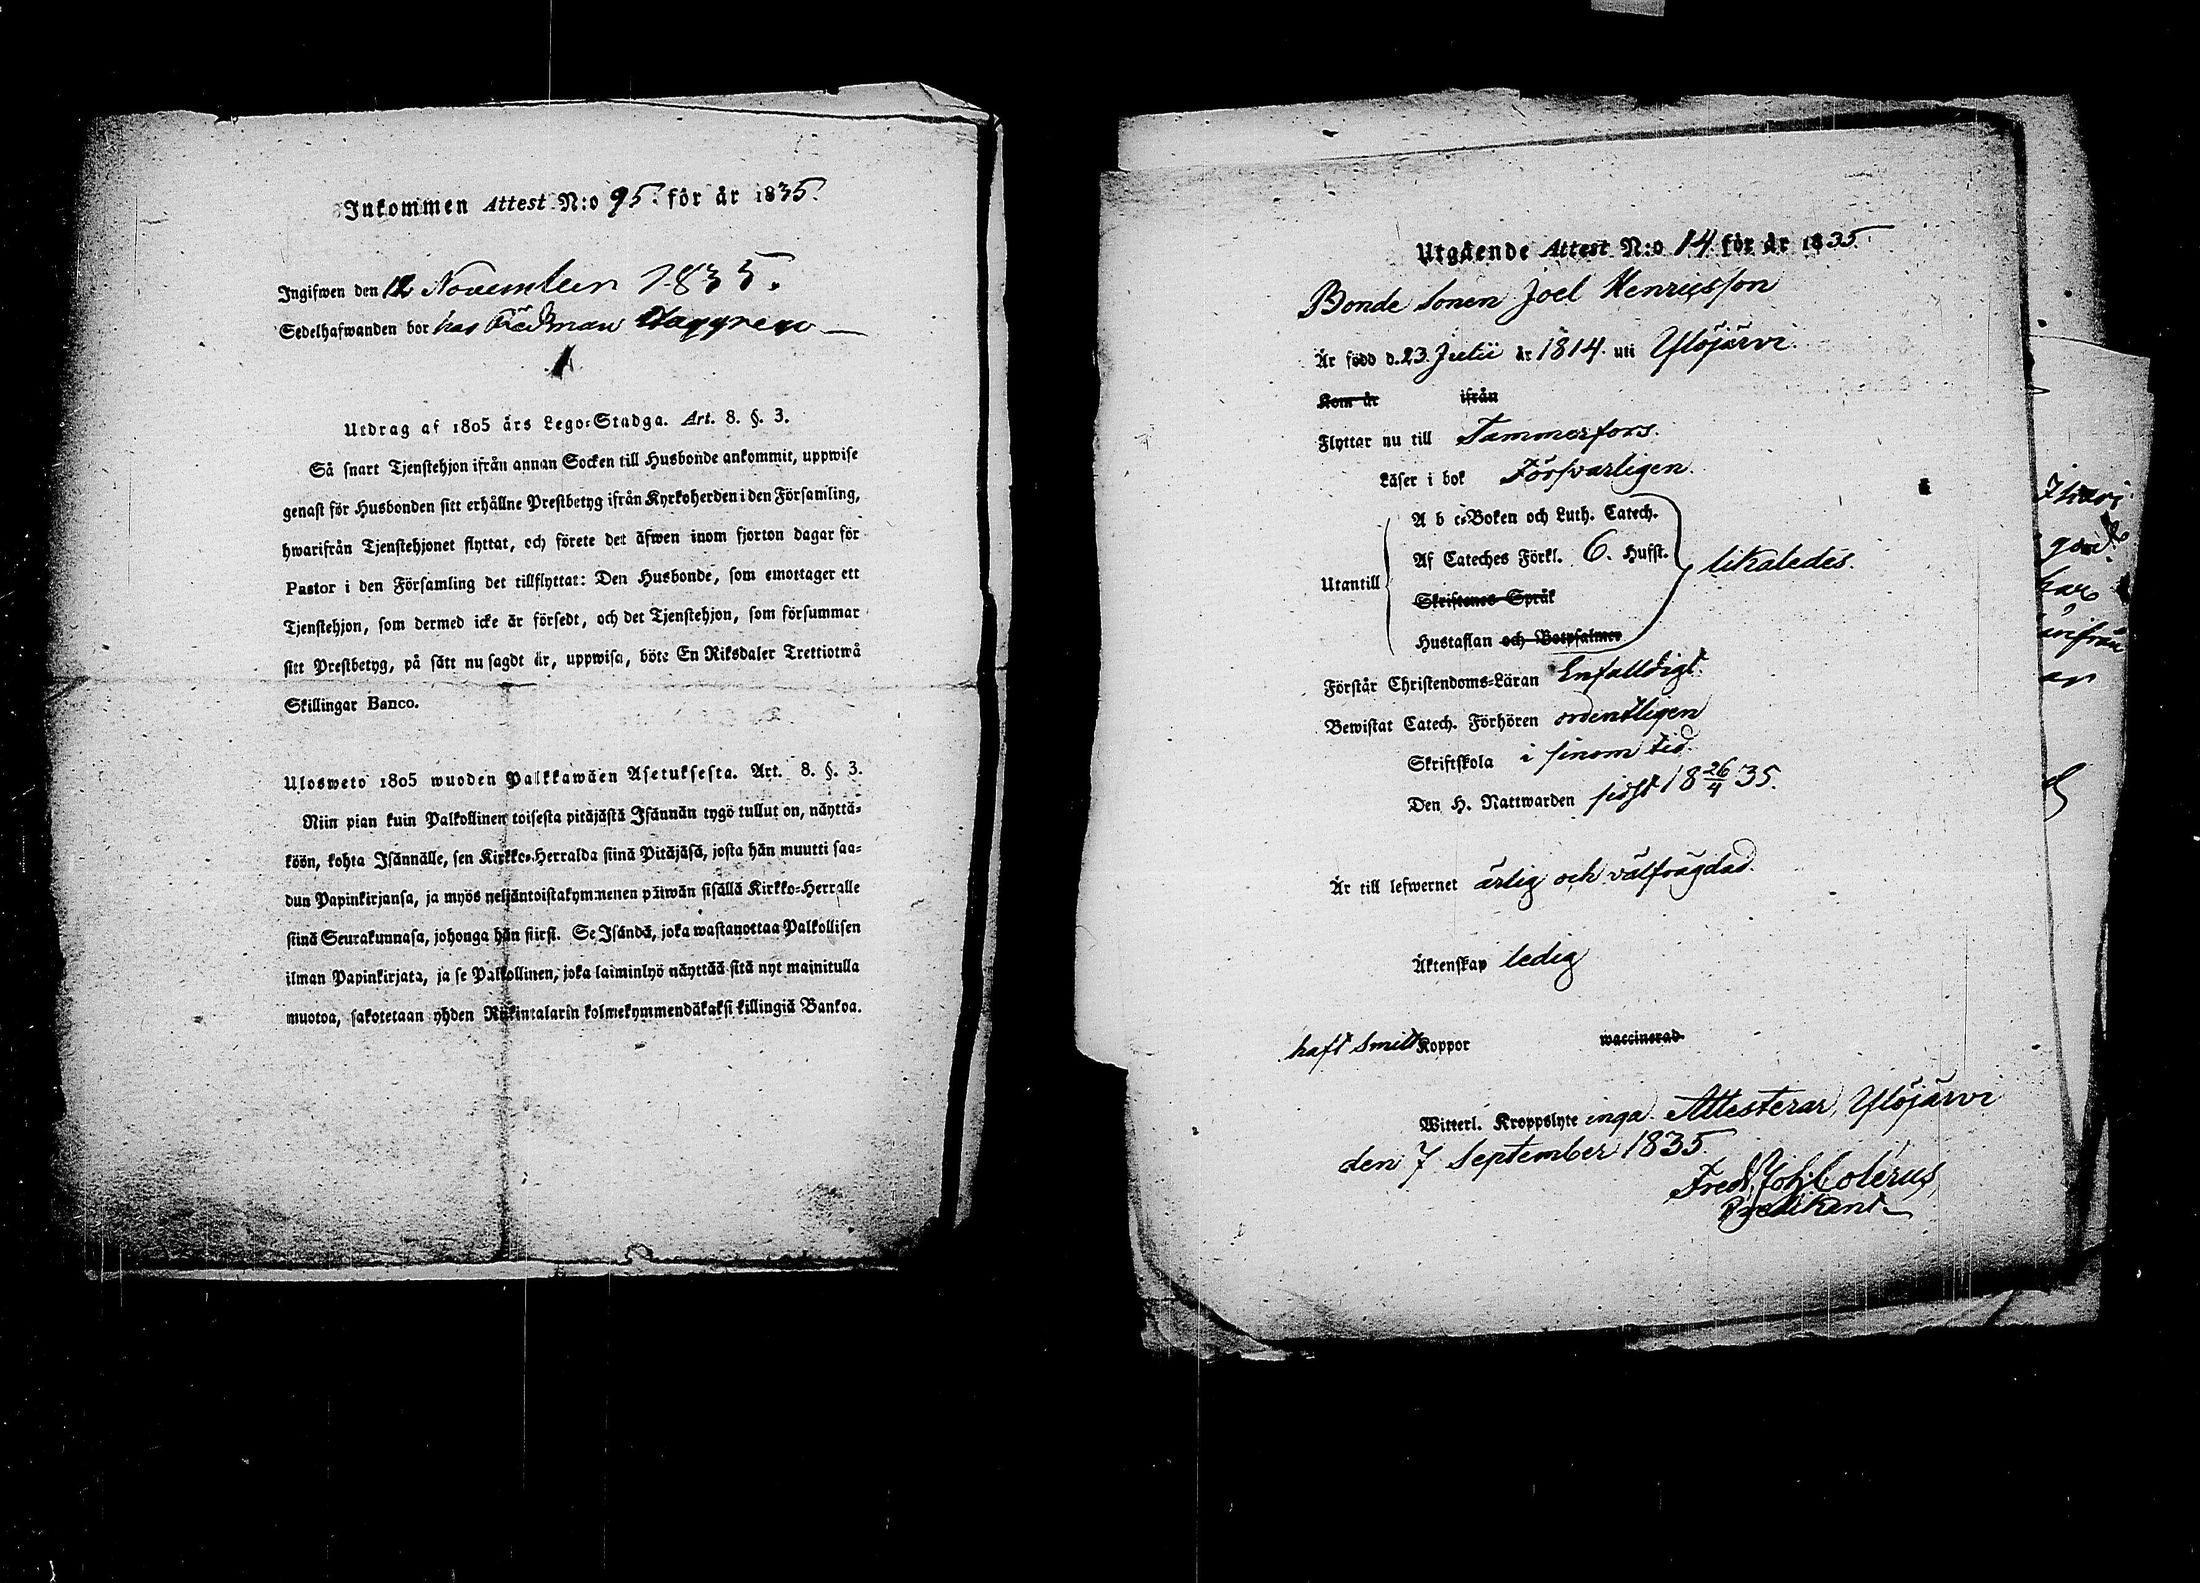 Inkommen Attest N:o 95. för år 1835.
Ingifwen den 12 November 1835.
Sedelhafwanden bor hos Rådman Haggren
Utdrag af 1805 års Lego-Stadga. Art. 8. §. 3.
Så snart Tjenstehjon ifrån annan Socken till Husbonde ankommit, uppwise
genast för Husbonden sitt erhållne Prestbetyg ifrån Kyrkoherden i den Församling,
hwarifrån Tjenstehjonet flyttat, och förete det äfwen inom fjorton dagar för
Pastor i den Församling det tillflyttat: Den Husbonde, som emottager ett
Tjenstehjon, som dermed icke är försedt, och det Tjenstehjon, som försummar
sitt Prestbetyg, på sätt nu sagdt är, uppwisa, böte En Riksdaler Trettiotwå
Skillingar Banco.
Ulosweto 1805 wuoden Palkkawäen Asetuksesta. Art. 8. §. 3.
Niin pian kuin Palkollinen toisesta pitäjästä Isännän tygö tullut on, näyttä-
köön, kohta Isännälle, sen Kirkko-Herralda siinä Pitäjäsä, josta hän muutti saa-
dun Papinkirjansa, ja myös neljäntoistakymmenen päiwän sisällä Kirkko-Herralle
siinä Seurakunnasa, johonga hän siirst. Se Isändä, joka wastanottaa Palkollisen
ilman Papinkirjata, ja se Palkollinen, joka laiminlyö näyttää sitä nyt mainitulla
muotoa, sakotetaan yhden Riikintalarin kolmekymmendäkaksi killingiä Bankoa.
Utgående Attest N:o 14. för år 1835
Bonde Sonen Joel Henricsson
Är född d. 23. Julii år 1814. uti Ylöjärvi.
Kom år ifrån
Flyttar nu till Tammerfors.
Läser i bok Försvarligen.
Utantill
A b c-Boken och Luth. Catech.
Af Cateches Förkl. 6. Hufst.
Skriftenes Språk
Hustaflan och Botpsalmer
likaledes.
Förstår Christendoms-Läran Enfalldigt
Bewistat Catech. Förhören ordentligen
Skriftskola i sinom tid
Den H. Nattwarden sidst 18 26/4 35.
Är till lefwernet ärlig och välfrägdad.
Äktenskap ledig
haft Smitt Koppor waccinerad
Witterl. Kroppslyte inga. Attesterar, Ylöjärvi
den 7 September 1835.
Fred. Joh. Colerus,
Predikant